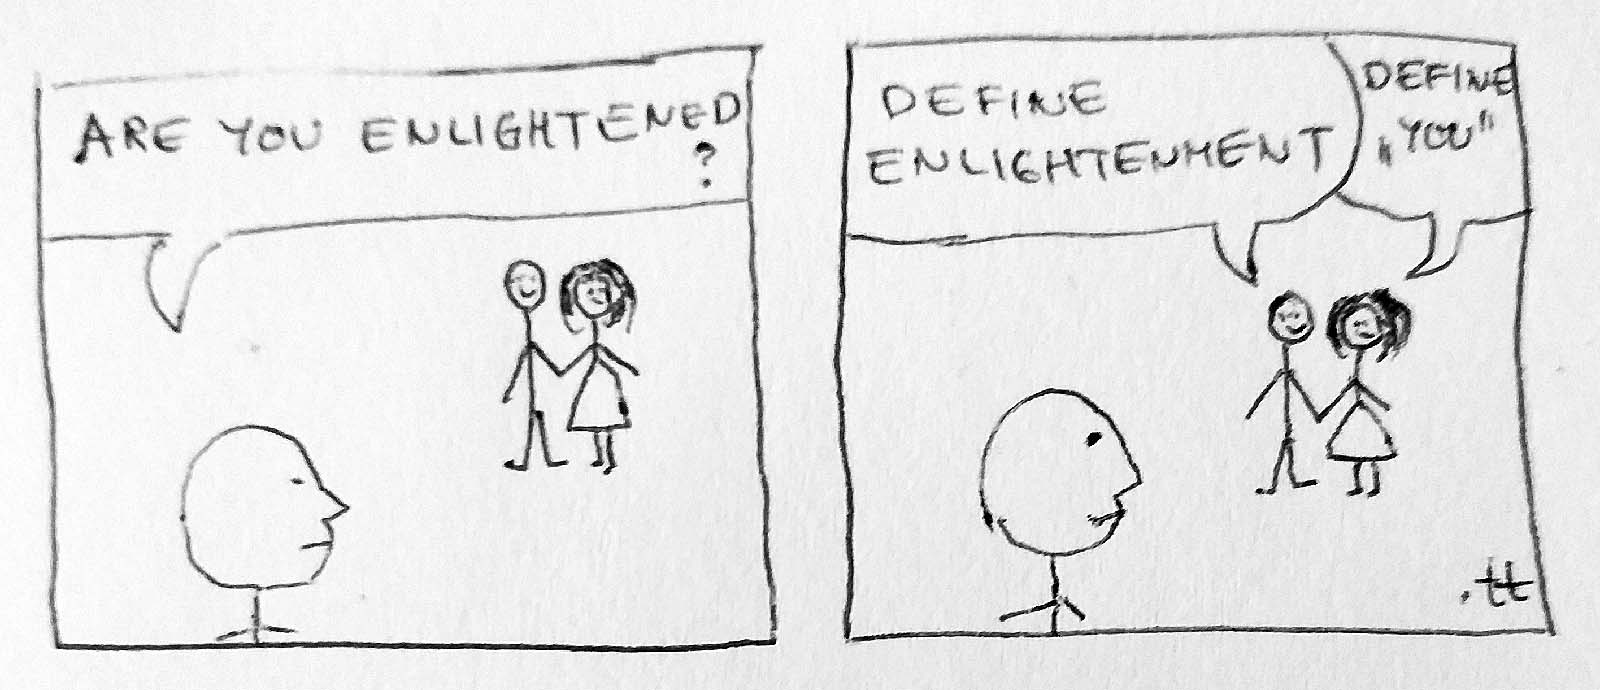 ARE YOU ENLIGHTENED
?
DEFINE
ENLIGHTENMENT
DEFINE
„YOU"
.tt